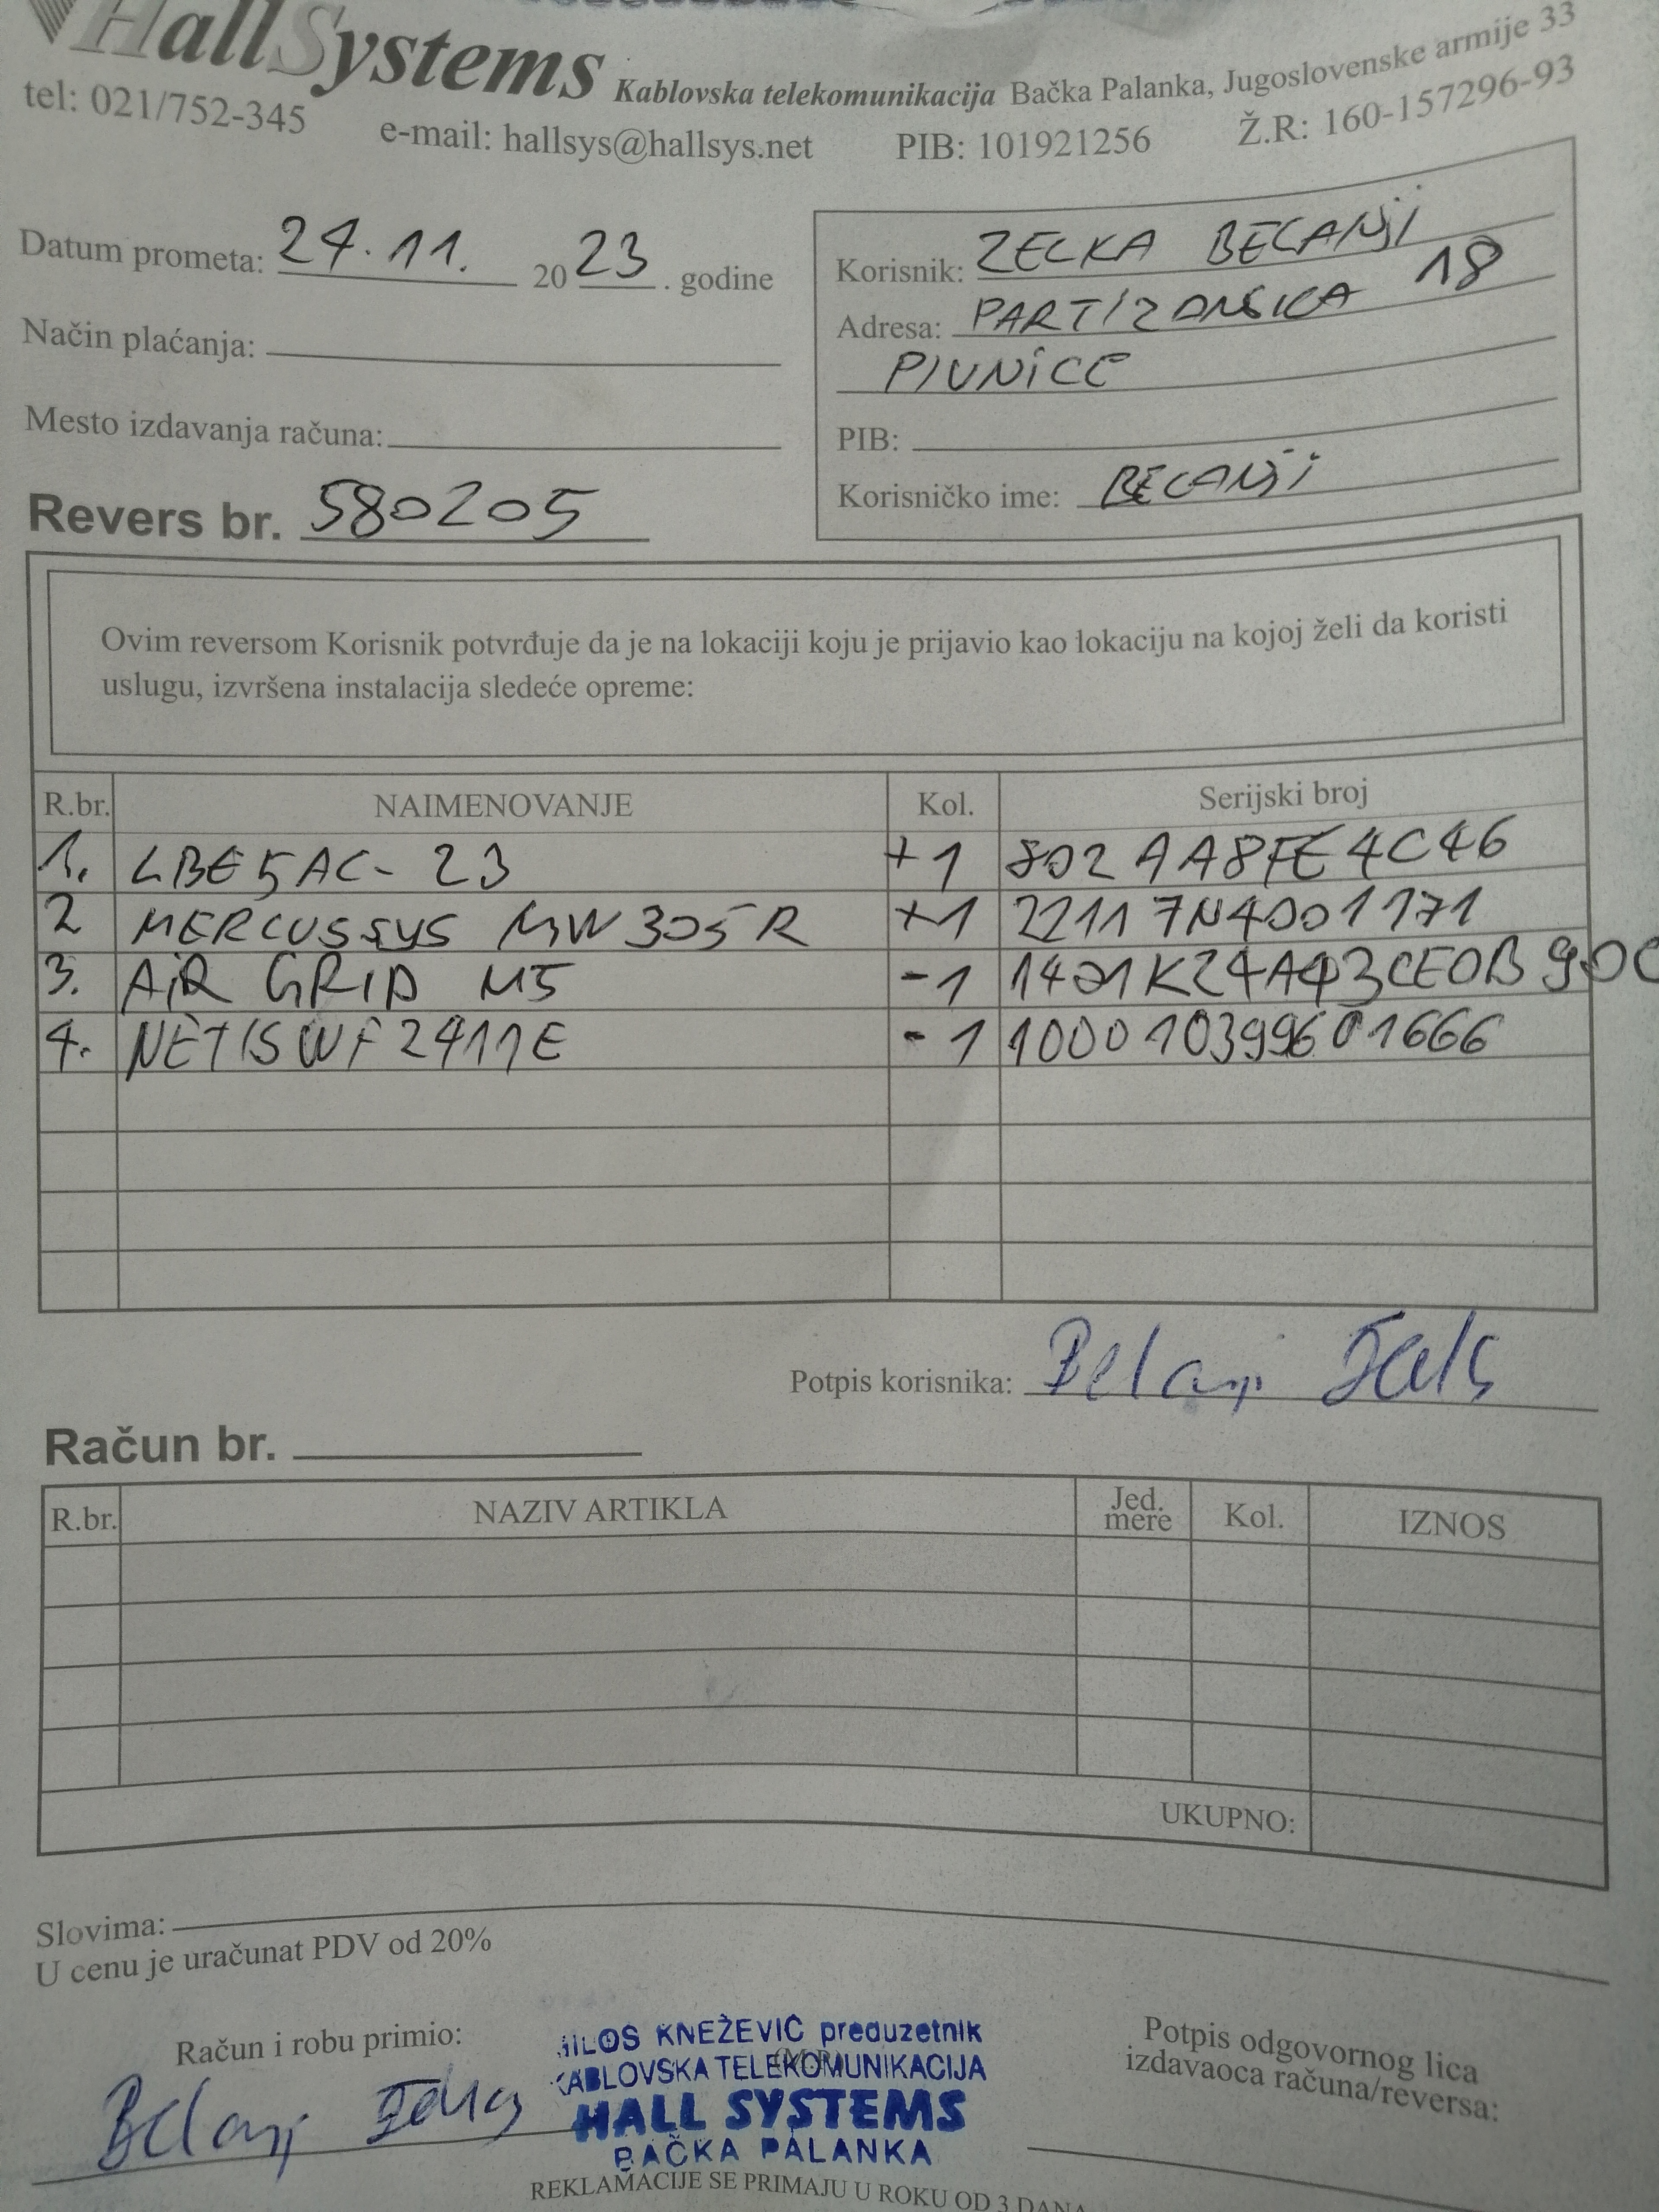 HallSystems Kablovska telekomunikacija Bačka Palanka, Jugoslovenske armije 33
tel: 021/752-345 e-mail: hallsys@hallsys.net PIB: 101921256 Ž.R: 160-157296-93
Datum prometa: 24.11. 2023. godine
Način plaćanja:
Mesto izdavanja računa:
Revers br. 580205
Korisnik: ZELKA BELANJI
Adresa: PARTIZANSKA 18
PIVNICE
PIB:
Korisničko ime: BELANJI
Ovim reversom Korisnik potvrđuje da je na lokaciji koju je prijavio kao lokaciju na kojoj želi da koristi
uslugu, izvršena instalacija sledeće opreme:
R.br. NAIMENOVANJE Kol. Serijski broj
1. LBE5AC-23 +1 802AA8FE4C46
2 MERCUSSYS MW305R +1 22117N4001171
3. AIR GRID M5 -1 1421K24A43CE0B90C
4. NETIS WF2411E -1 100010399601666
Potpis korisnika: Belanji
Račun br.
R.br. NAZIV ARTIKLA Jed. mere Kol. IZNOS
UKUPNO:
Slovima:
U cenu je uračunat PDV od 20%
Račun i robu primio:
Belanji
MILOS KNEŽEVIĆ preduzetnik
KABLOVSKA TELEKOMUNIKACIJA
HALL SYSTEMS
BAČKA PALANKA
Potpis odgovornog lica
izdavaoca računa/reversa:
REKLAMACIJE SE PRIMAJU U ROKU OD 3 DANA